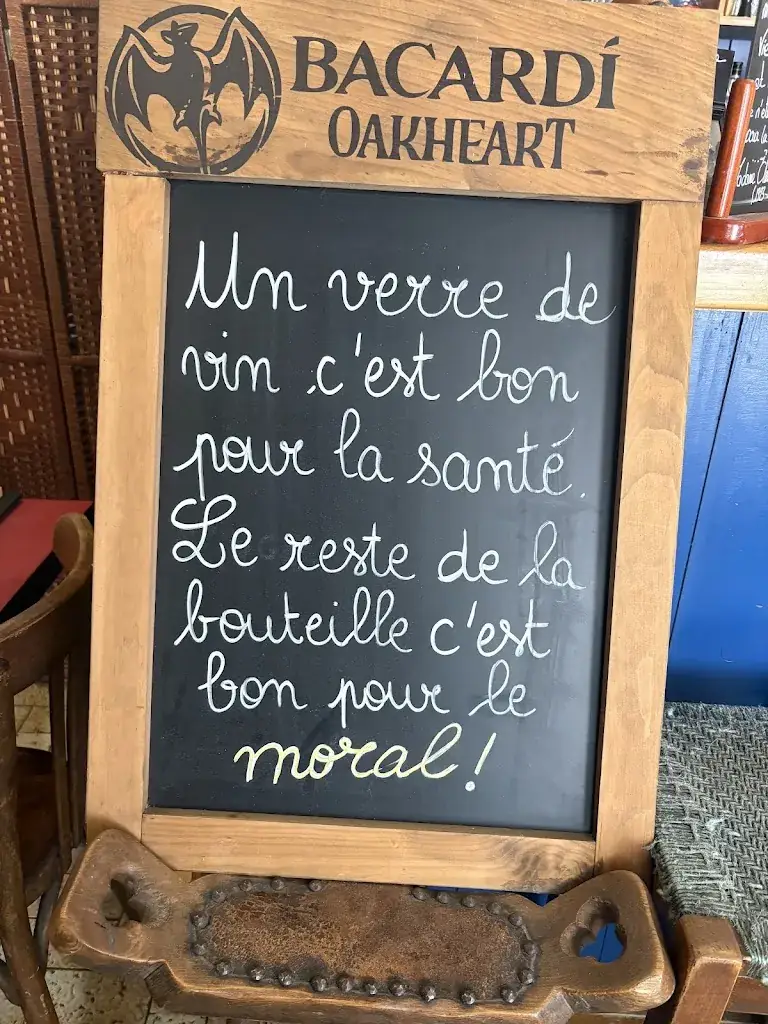 BACARDÍ
OAKHEART
Un verre de
vin c'est bon
pour la santé.
Le reste de la
bouteille c'est
bon pour le
moral!